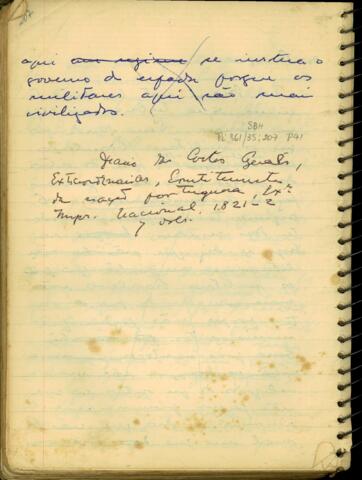 aqui um regimen se instrua o
governo da espada porque os
militares aqui são mais
civilizados.
SBH
Pi 361/35;207 P41
Diario das Cortes Geraes,
Extraordinarias, Constituintes
da nação portugueza, Lxª
Impr. Nacional. 1821-2
7 vols.